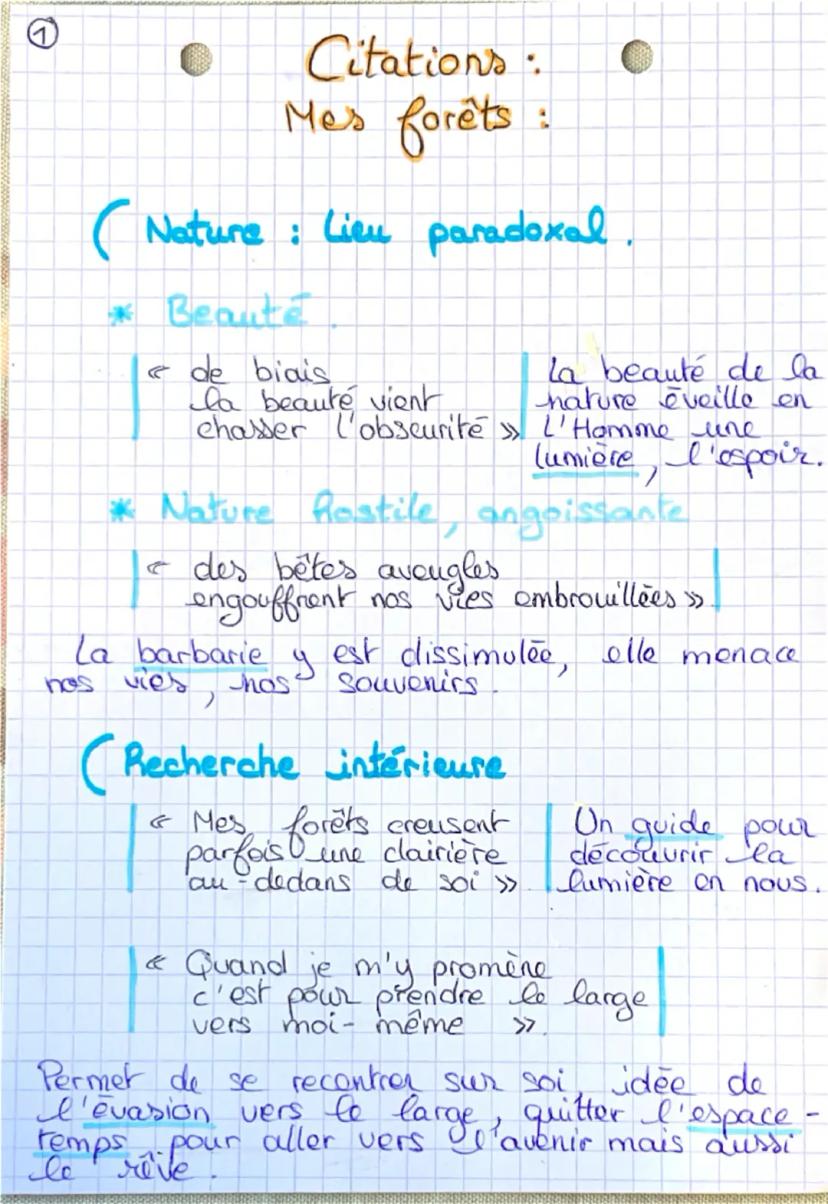 1
Citations :
Mes forêts :
( Nature : Lieu paradoxal.
* Beauté.
« de biais
la beauté vient
chasser l'obscurité »
La beauté de la
nature éveille en
L'Homme une
lumière, l'espoir.
* Nature hostile, angoissante
« des bêtes aveugles
engouffrent nos vies embrouillées ».
La barbarie y est dissimulée, elle menace
nos vies, nos souvenirs.
( Recherche intérieure
« Mes forêts creusent
parfois une clairière
au-dedans de soi »
Un guide pour
découvrir la
lumière en nous.
« Quand je m'y promène
c'est pour prendre le large
vers moi-même ».
Permet de se recentrer sur soi, idée de
l'évasion vers le large, quitter l'espace-
temps pour aller vers l'avenir mais aussi
le rêve.